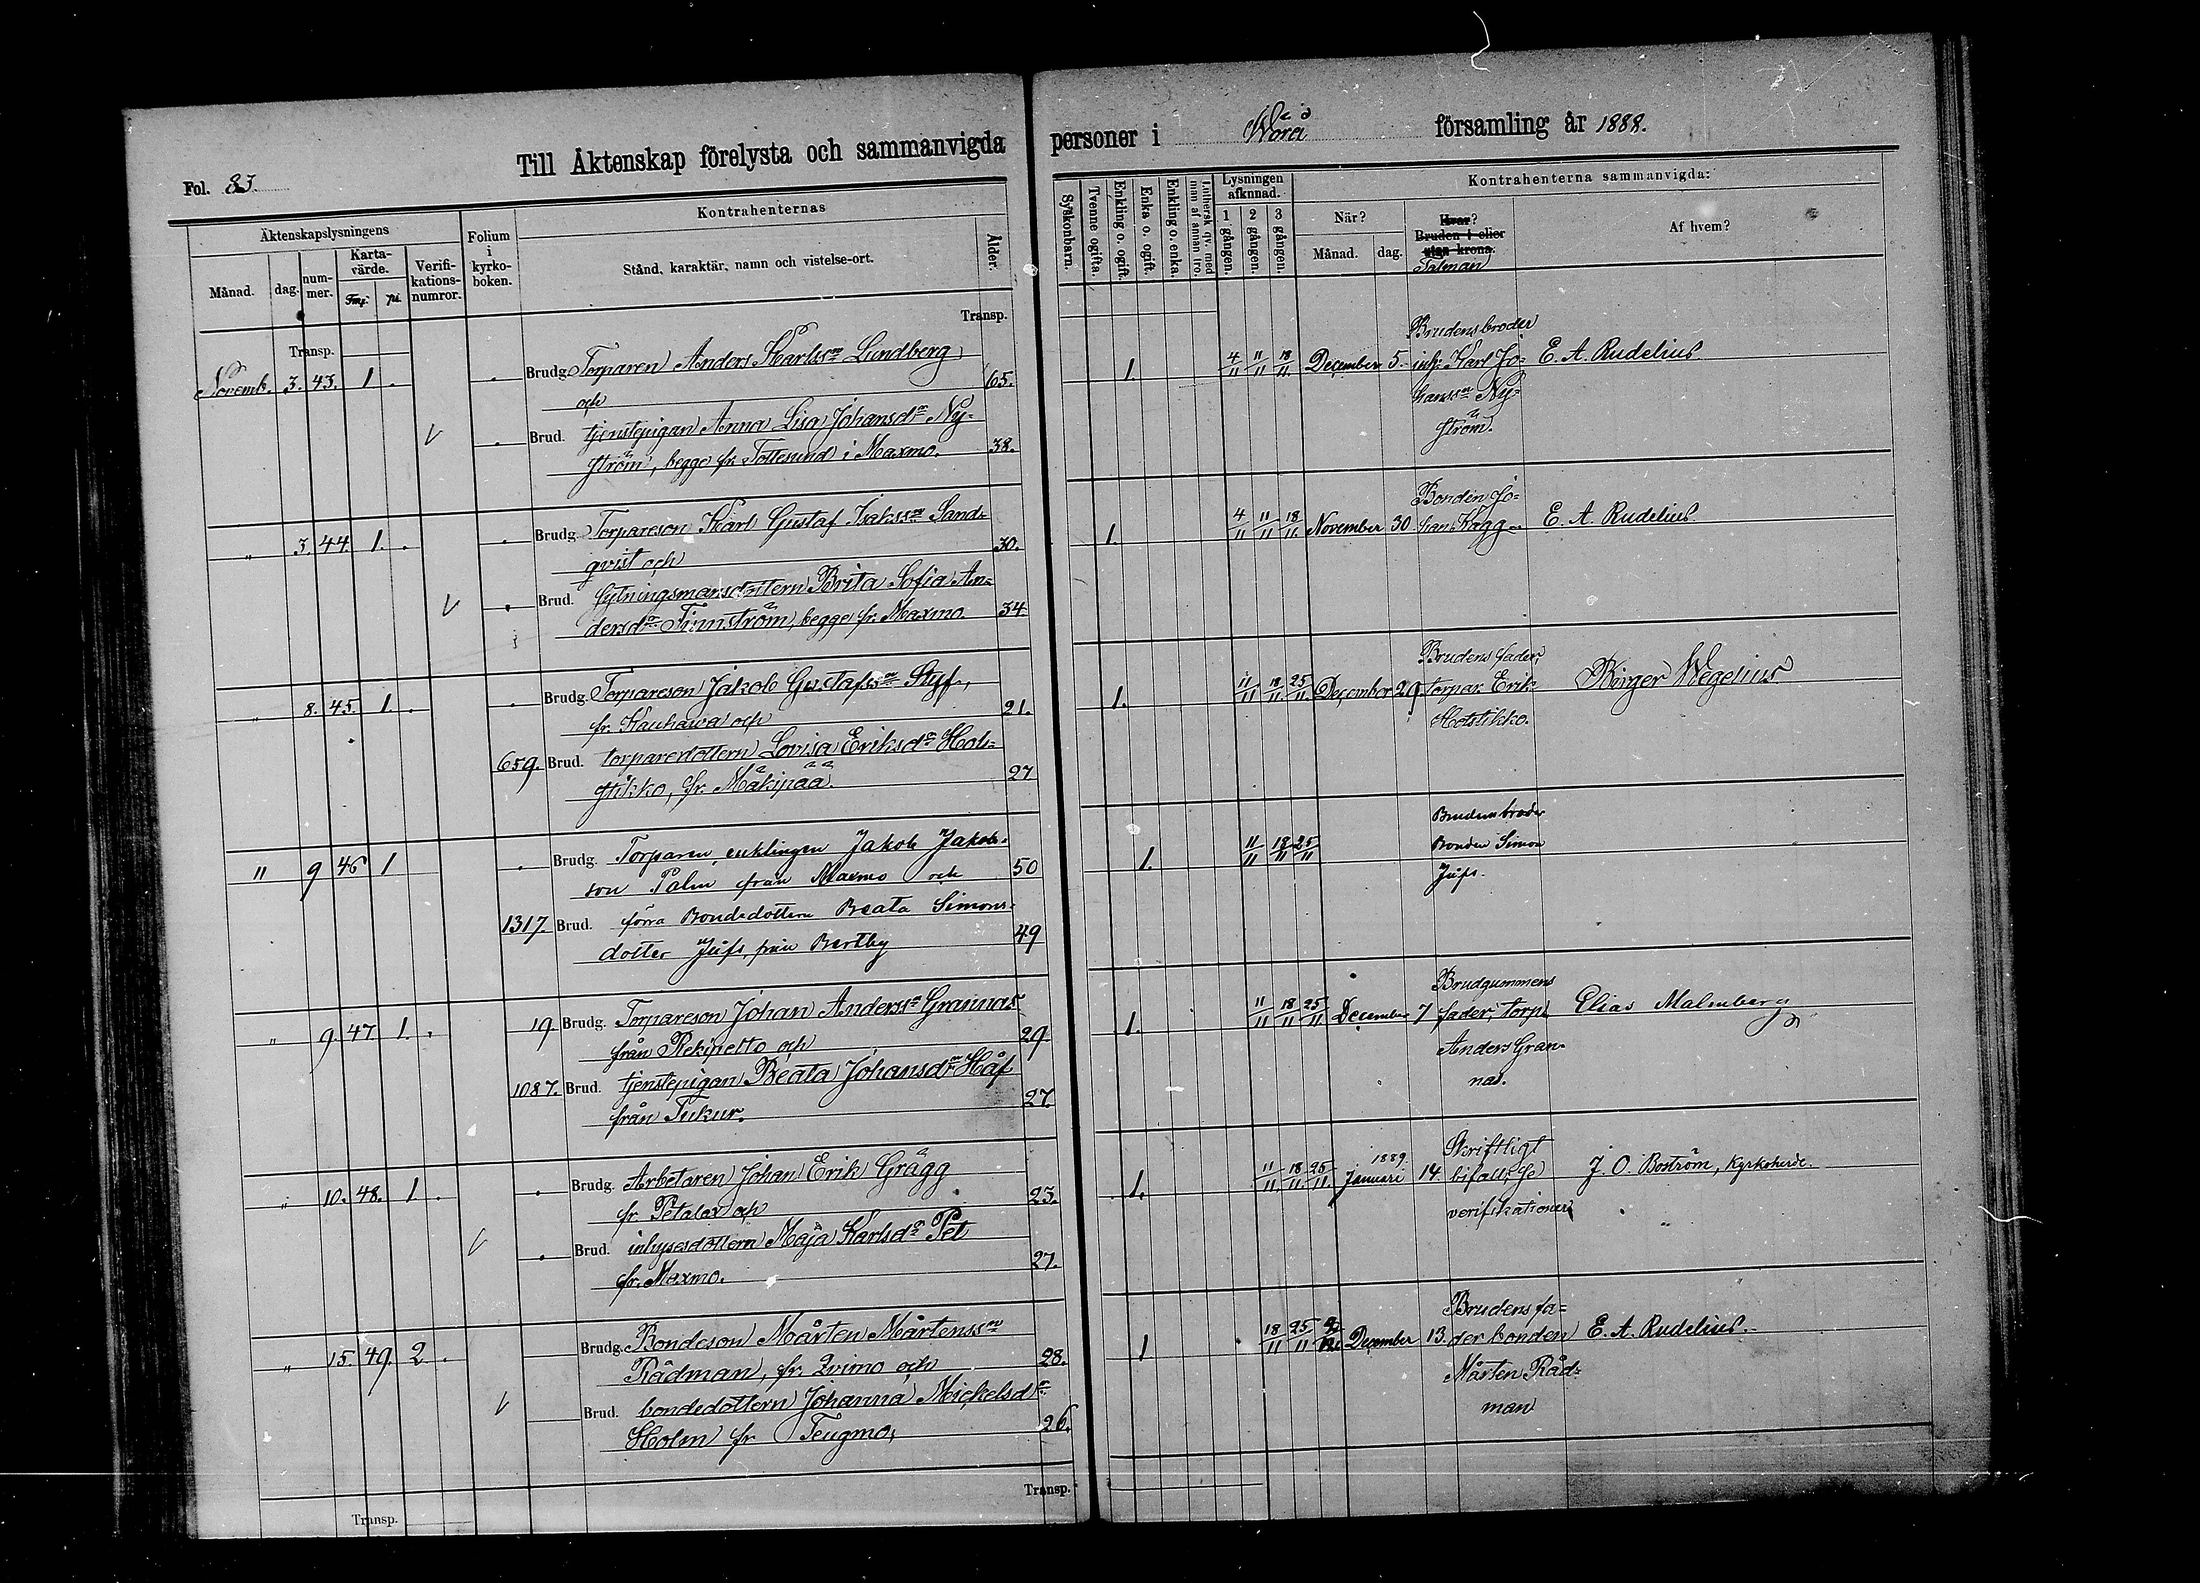 Fol. 83.
Till Äktenskap förelysta och sammanvigda
Äktenskapslysningens
Månad.
dag.
num-
mer.
Karta-
värde.
Fmg.
pi.
Verifi-
kations-
numror.
Folium
i
kyrko-
boken.
Kontrahenternas
Stånd, karaktär, namn och vistelse-ort.
Ålder.
Transp.
Transp.
Novemb. 3. 43. 1 . Brudg. Torparen Anders Karlssn Lundberg 65.
och
Brud. tjenstepigan Anna Lisa Johansdr Ny-
ström, begge fr. Tottesund i Maxmo. 38.
" 3. 44. 1. . Brudg. Torpareson Karl Gustaf Isakssn Sand-
qvist och 30.
Brud. sytningsmansdottern Brita Sofia An-
dersdr Finnström, begge fr. Maxmo. 34
" 8. 45. 1. . Brudg. Torpareson Jakob Gustafssn Styf,
fr. Kauhava och 21.
659. Brud. torparedottern Lovisa Eriksdr Hols-
tikko, fr. Mäkipää. 27
" 9 46 1 Brudg. Torparen, enklingen Jakob Jakobs-
son Palm från Maxmo och 50
1317 Brud. förra Bondedottern Beata Simons-
dotter Jufs, från Bertby 49
" 9. 47. 1. . 19 Brudg. Torpareson Johan Anderssn Grannas
från Rekipelto och 29
1087. Brud. tjenstepigan Beata Johansdr Håf
från Tukur. 27.
" 10. 48. 1 . Brudg. Arbetaren Johan Erik Grägg
fr. Petalax och 23.
Brud. inhysesdottern Maja Karlsdr Pet
fr. Maxmo. 27.
" 15. 49. 2 . Brudg. Bondeson Mårten Mårtenssn
Rådman, fr. Qvimo och 28.
Brud. bondedottern Johanna Mickelsdr
Holm fr. Teugmo. 26.
Transp.
Transp.
personer i Wörå församling år 1888.
Syskonbarn.
Tvenne ogifta.
Enkling o. ogift.
Enka o. ogift.
Enkling o. enka.
Luthersk qv. med
man af annan tro.
Lysningen
afknnad.
1 gången.
2 gången.
3 gången.
Kontrahenterna sammanvigda:
När?
Månad.
dag.
Hvar?
Bruden i eller
utan krona.
Talman
Af hvem?
Brudens broder
1. 4/11 11/11 18/11. December 5. inh. Karl Jo- E. A. Rudelius
hanssn Ny-
ström.
Bonden Jo-
1. 4/11 11/11 18/11. November 30 han Kagg E. A. Rudelius.
Brudens fader,
1. 11/11 18/11 25/11. December 29. torpar. Erik Birger Wegelius
Holstikko.
Brudens broder
1. 11/11 18/11 25/11 Bonden Simon
Jufs.
Brudgummens
1. 11/11 18/11 25/11 December 7 fader, torp. Elias Malmberg
Anders Gran-
nas.
Skriftligt
1. 11/11. 18/11. 25/11. 1889. Januari 14. bifall, se J. O. Boström, Kyrkoherde.
verifikationen
Brudens fa-
1 18/11 25/11 2/12. December 13. der bonden E. A. Rudelius.
Mårten Råd-
man